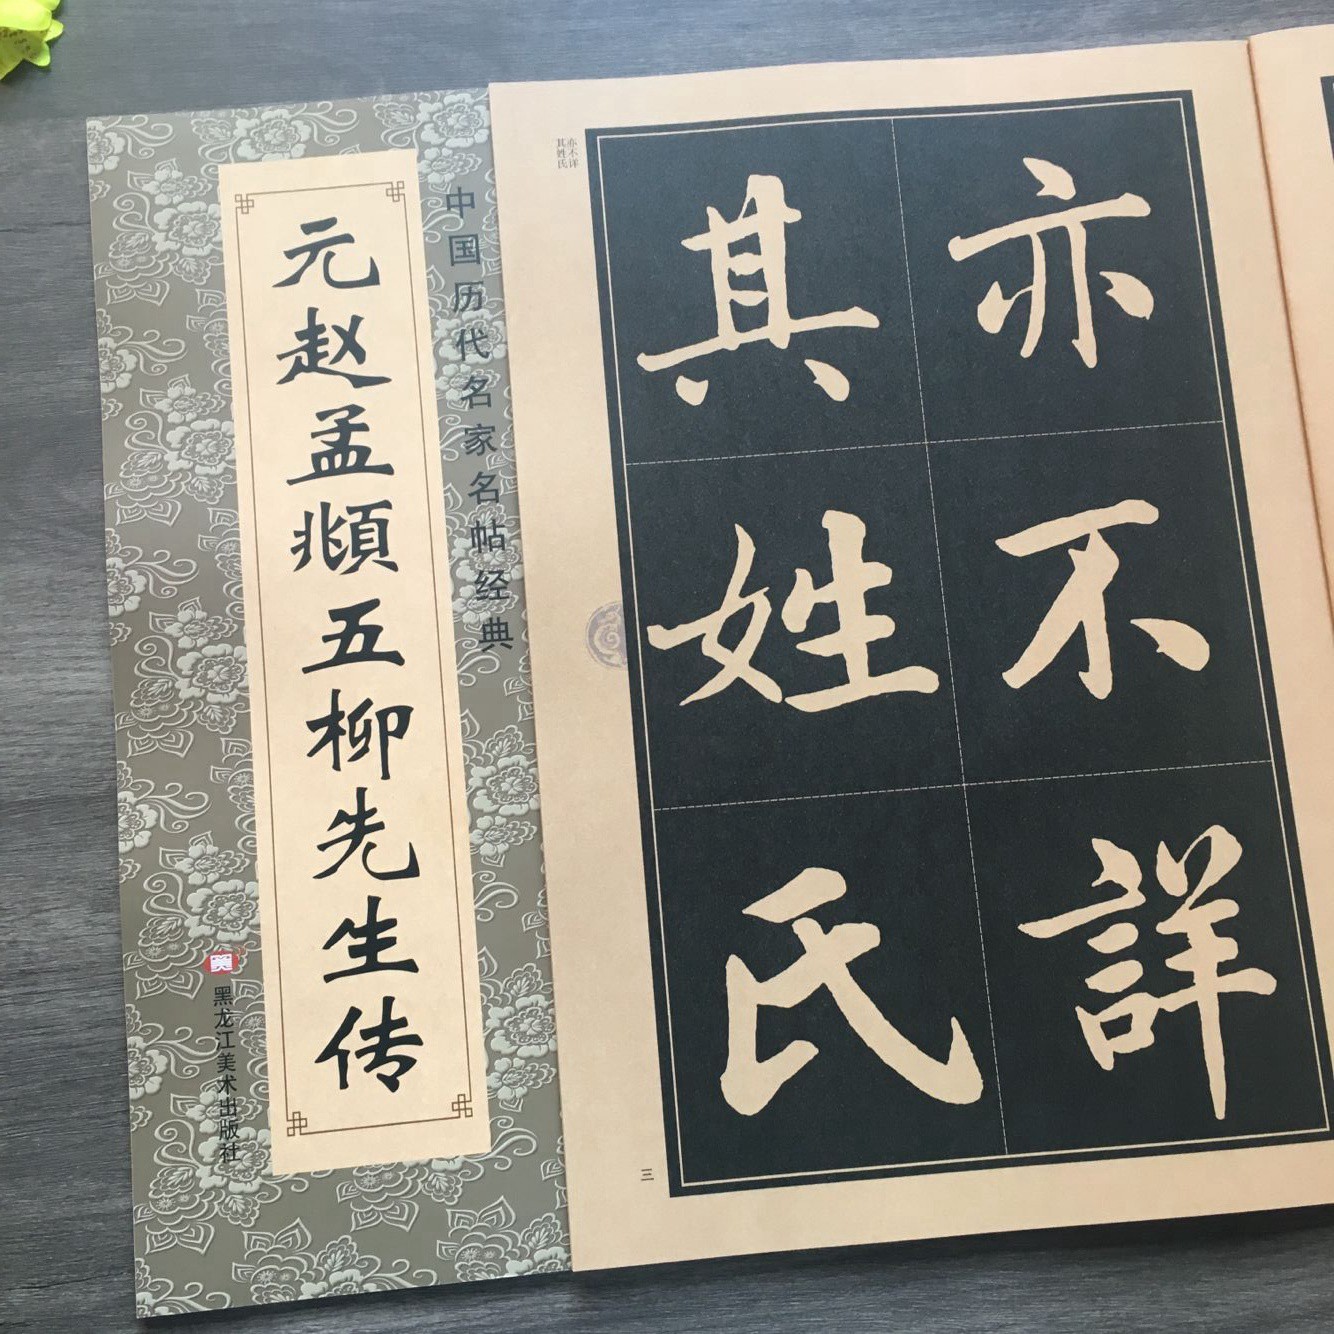 中国历代名家名帖经典
元赵孟頫五柳先生传
黑龙江美术出版社
亦不详
其姓氏
亦不詳
其姓氏
三